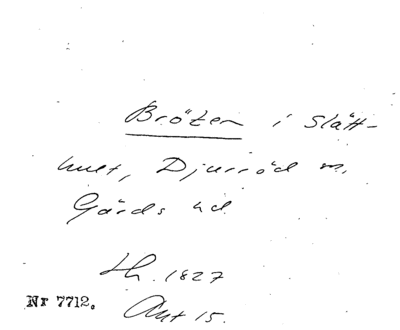 Bröten i Slätt-
hult, Djurröd m.
Gärds hd.
Lh. 1827
Nr 7712. Akt 15.